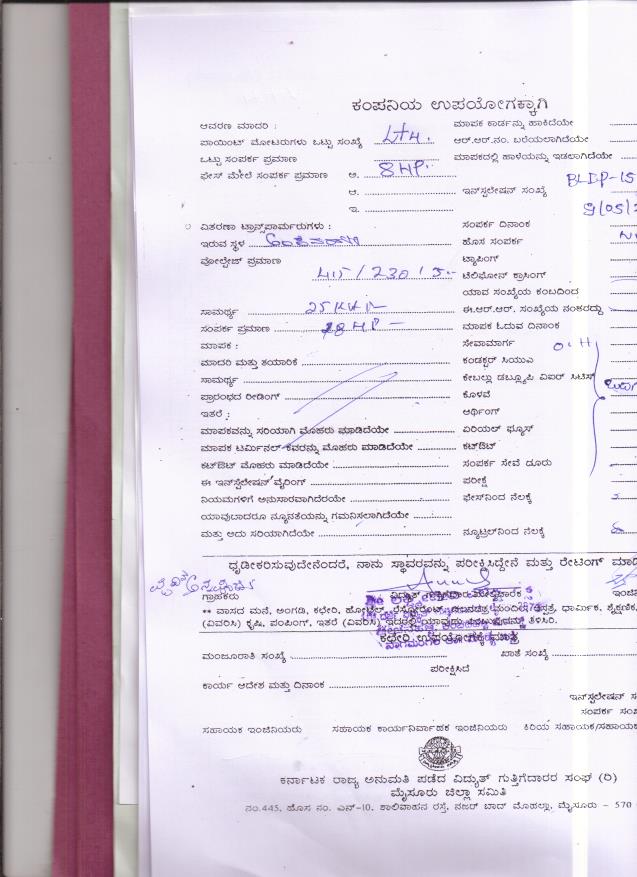 ಕಂಪನಿಯ ಉಪಯೋಗಕ್ಕಾಗಿ
ಆವರಣ ಮಾದರಿ : ಮಾಪಕ ಕಾರ್ಡನ್ನು ಹಾಕಿದೆಯೇ
ಪಾಯಿಂಟ್ ಮೋಟರುಗಳು ಒಟ್ಟು ಸಂಖ್ಯೆ ಆರ್.ಆರ್.ನಂ. ಬರೆಯಲಾಗಿದೆಯೇ
ಒಟ್ಟು ಸಂಪರ್ಕ ಪ್ರಮಾಣ ಮಾಪಕದಲ್ಲಿ ಹಾಳೆಯನ್ನು ಇಡಲಾಗಿದೆಯೇ
ಫೇಸ್ ಮೇಲೆ ಸಂಪರ್ಕ ಪ್ರಮಾಣ ಅ. 8HP.
ಆ. ಇನ್‌ಸ್ಟಲೇಷನ್ ಸಂಖ್ಯೆ BLDP-15
ಇ.
ವಿತರಣಾ ಟ್ರಾನ್ಸ್‌ಫಾರ್ಮರುಗಳು : ಸಂಪರ್ಕ ದಿನಾಂಕ
ಇರುವ ಸ್ಥಳ ಹೊಸ ಸಂಪರ್ಕ
ವೋಲ್ಟೇಜ್ ಪ್ರಮಾಣ ಟ್ಯಾಪಿಂಗ್
415/230 ಟೆಲಿಫೋನ್ ಕ್ರಾಸಿಂಗ್
ಯಾವ ಸಂಖ್ಯೆಯ ಕಂಬದಿಂದ
ಸಾಮರ್ಥ್ಯ 25KVA ಈ.ಆರ್.ಆರ್. ಸಂಖ್ಯೆಯ ನಂತರದ್ದು
ಸಂಪರ್ಕ ಪ್ರಮಾಣ 28HP ಮಾಪಕ ಓದುವ ದಿನಾಂಕ
ಮಾಪಕ : ಸೇವಾಮಾರ್ಗ O.H
ಮಾದರಿ ಮತ್ತು ತಯಾರಿಕೆ ಕಂಡಕ್ಟರ್ ಸಿಯುಎ
ಸಾಮರ್ಥ್ಯ ಕೇಬಲ್ಲು ಡಬ್ಲ್ಯೂಪಿ ವಿಐಆರ್ ಸಿಟಿಸ್
ಪ್ರಾರಂಭದ ರೀಡಿಂಗ್ ಕೊಳವೆ
ಇತರೆ : ಅರ್ಥಿಂಗ್
ಮಾಪಕವನ್ನು ಸರಿಯಾಗಿ ಮೊಹರು ಮಾಡಿದೆಯೇ ಏರಿಯಲ್ ಫ್ಯೂಸ್
ಮಾಪಕ ಟರ್ಮಿನಲ್ ಕವರನ್ನು ಮೊಹರು ಮಾಡಿದೆಯೇ ಕಟ್‌ಔಟ್
ಕಟ್‌ಔಟ್ ಮೊಹರು ಮಾಡಿದೆಯೇ ಸಂಪರ್ಕ ಸೇವೆ ದೂರು
ಈ ಇನ್‌ಸ್ಟಲೇಷನ್ ವೈರಿಂಗ್ ಪರೀಕ್ಷೆ
ನಿಯಮಗಳಿಗೆ ಅನುಸಾರವಾಗಿದೆರಯೇ ಫೇಸ್‌ನಿಂದ ನೆಲಕ್ಕೆ
ಯಾವುದಾದರೂ ನ್ಯೂನತೆಯನ್ನು ಗಮನಿಸಲಾಗಿದೆಯೇ
ಮತ್ತು ಅದು ಸರಿಯಾಗಿದೆಯೇ ನ್ಯೂಟ್ರಲ್‌ನಿಂದ ನೆಲಕ್ಕೆ
ಧೃಡೀಕರಿಸುವುದೇನೆಂದರೆ, ನಾನು ಸ್ಥಾವರವನ್ನು ಪರೀಕ್ಷಿಸಿದ್ದೇನೆ ಮತ್ತು ರೇಟಿಂಗ್ ಮಾಡಿ
ಗ್ರಾಹಕರು ವಿದ್ಯುತ್ ಇಂಜಿ
** ವಾಸದ ಮನೆ, ಅಂಗಡಿ, ಕಛೇರಿ, ಹೋಟೆಲ್, ಧಾರ್ಮಿಕ, ಶೈಕ್ಷಣಿಕ,
(ವಿವರಿಸಿ) ಕೃಷಿ, ಪಂಪಿಂಗ್, ಇತರೆ (ವಿವರಿಸಿ) ತಿಳಿಸಿರಿ.
ಕಛೇರಿ ಉಪಯೋಗಕ್ಕೆ ಮಾತ್ರ
ಮಂಜೂರಾತಿ ಸಂಖ್ಯೆ ಖಾತೆ ಸಂಖ್ಯೆ
ಪರೀಕ್ಷಿಸಿದೆ
ಕಾರ್ಯ ಆದೇಶ ಮತ್ತು ದಿನಾಂಕ
ಇನ್‌ಸ್ಟಲೇಷನ್ ಸ
ಸಂಪರ್ಕ ಸಂ
ಸಹಾಯಕ ಇಂಜಿನಿಯರು ಸಹಾಯಕ ಕಾರ್ಯನಿರ್ವಾಹಕ ಇಂಜಿನಿಯರು ಕಿರಿಯ ಸಹಾಯಕ/ಸಹಾಯಕ
ಕರ್ನಾಟಕ ರಾಜ್ಯ ಅನುಮತಿ ಪಡೆದ ವಿದ್ಯುತ್ ಗುತ್ತಿಗೆದಾರರ ಸಂಘ (ರಿ)
ಮೈಸೂರು ಜಿಲ್ಲಾ ಸಮಿತಿ
ನಂ.445, ಹೊಸ ನಂ. ಎನ್-10, ಶಾಲಿವಾಹನ ರಸ್ತೆ, ನಜರ್ ಬಾದ್ ಮೊಹಲ್ಲಾ, ಮೈಸೂರು - 570